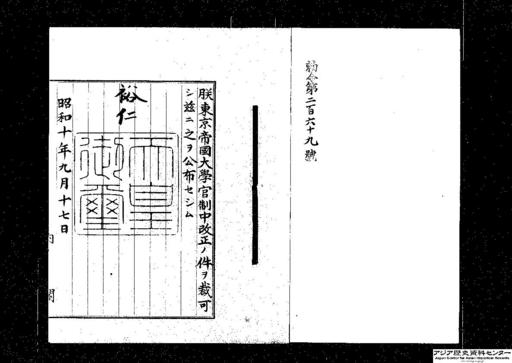 勅令第二百六十九號
朕東京帝國大學官制中改正ノ件ヲ裁可
シ茲ニ之ヲ公布セシム
裕仁
天皇御璽
昭和十年九月十七日
内閣
アジア歴史資料センター
Japan Center for Asian Historical Records